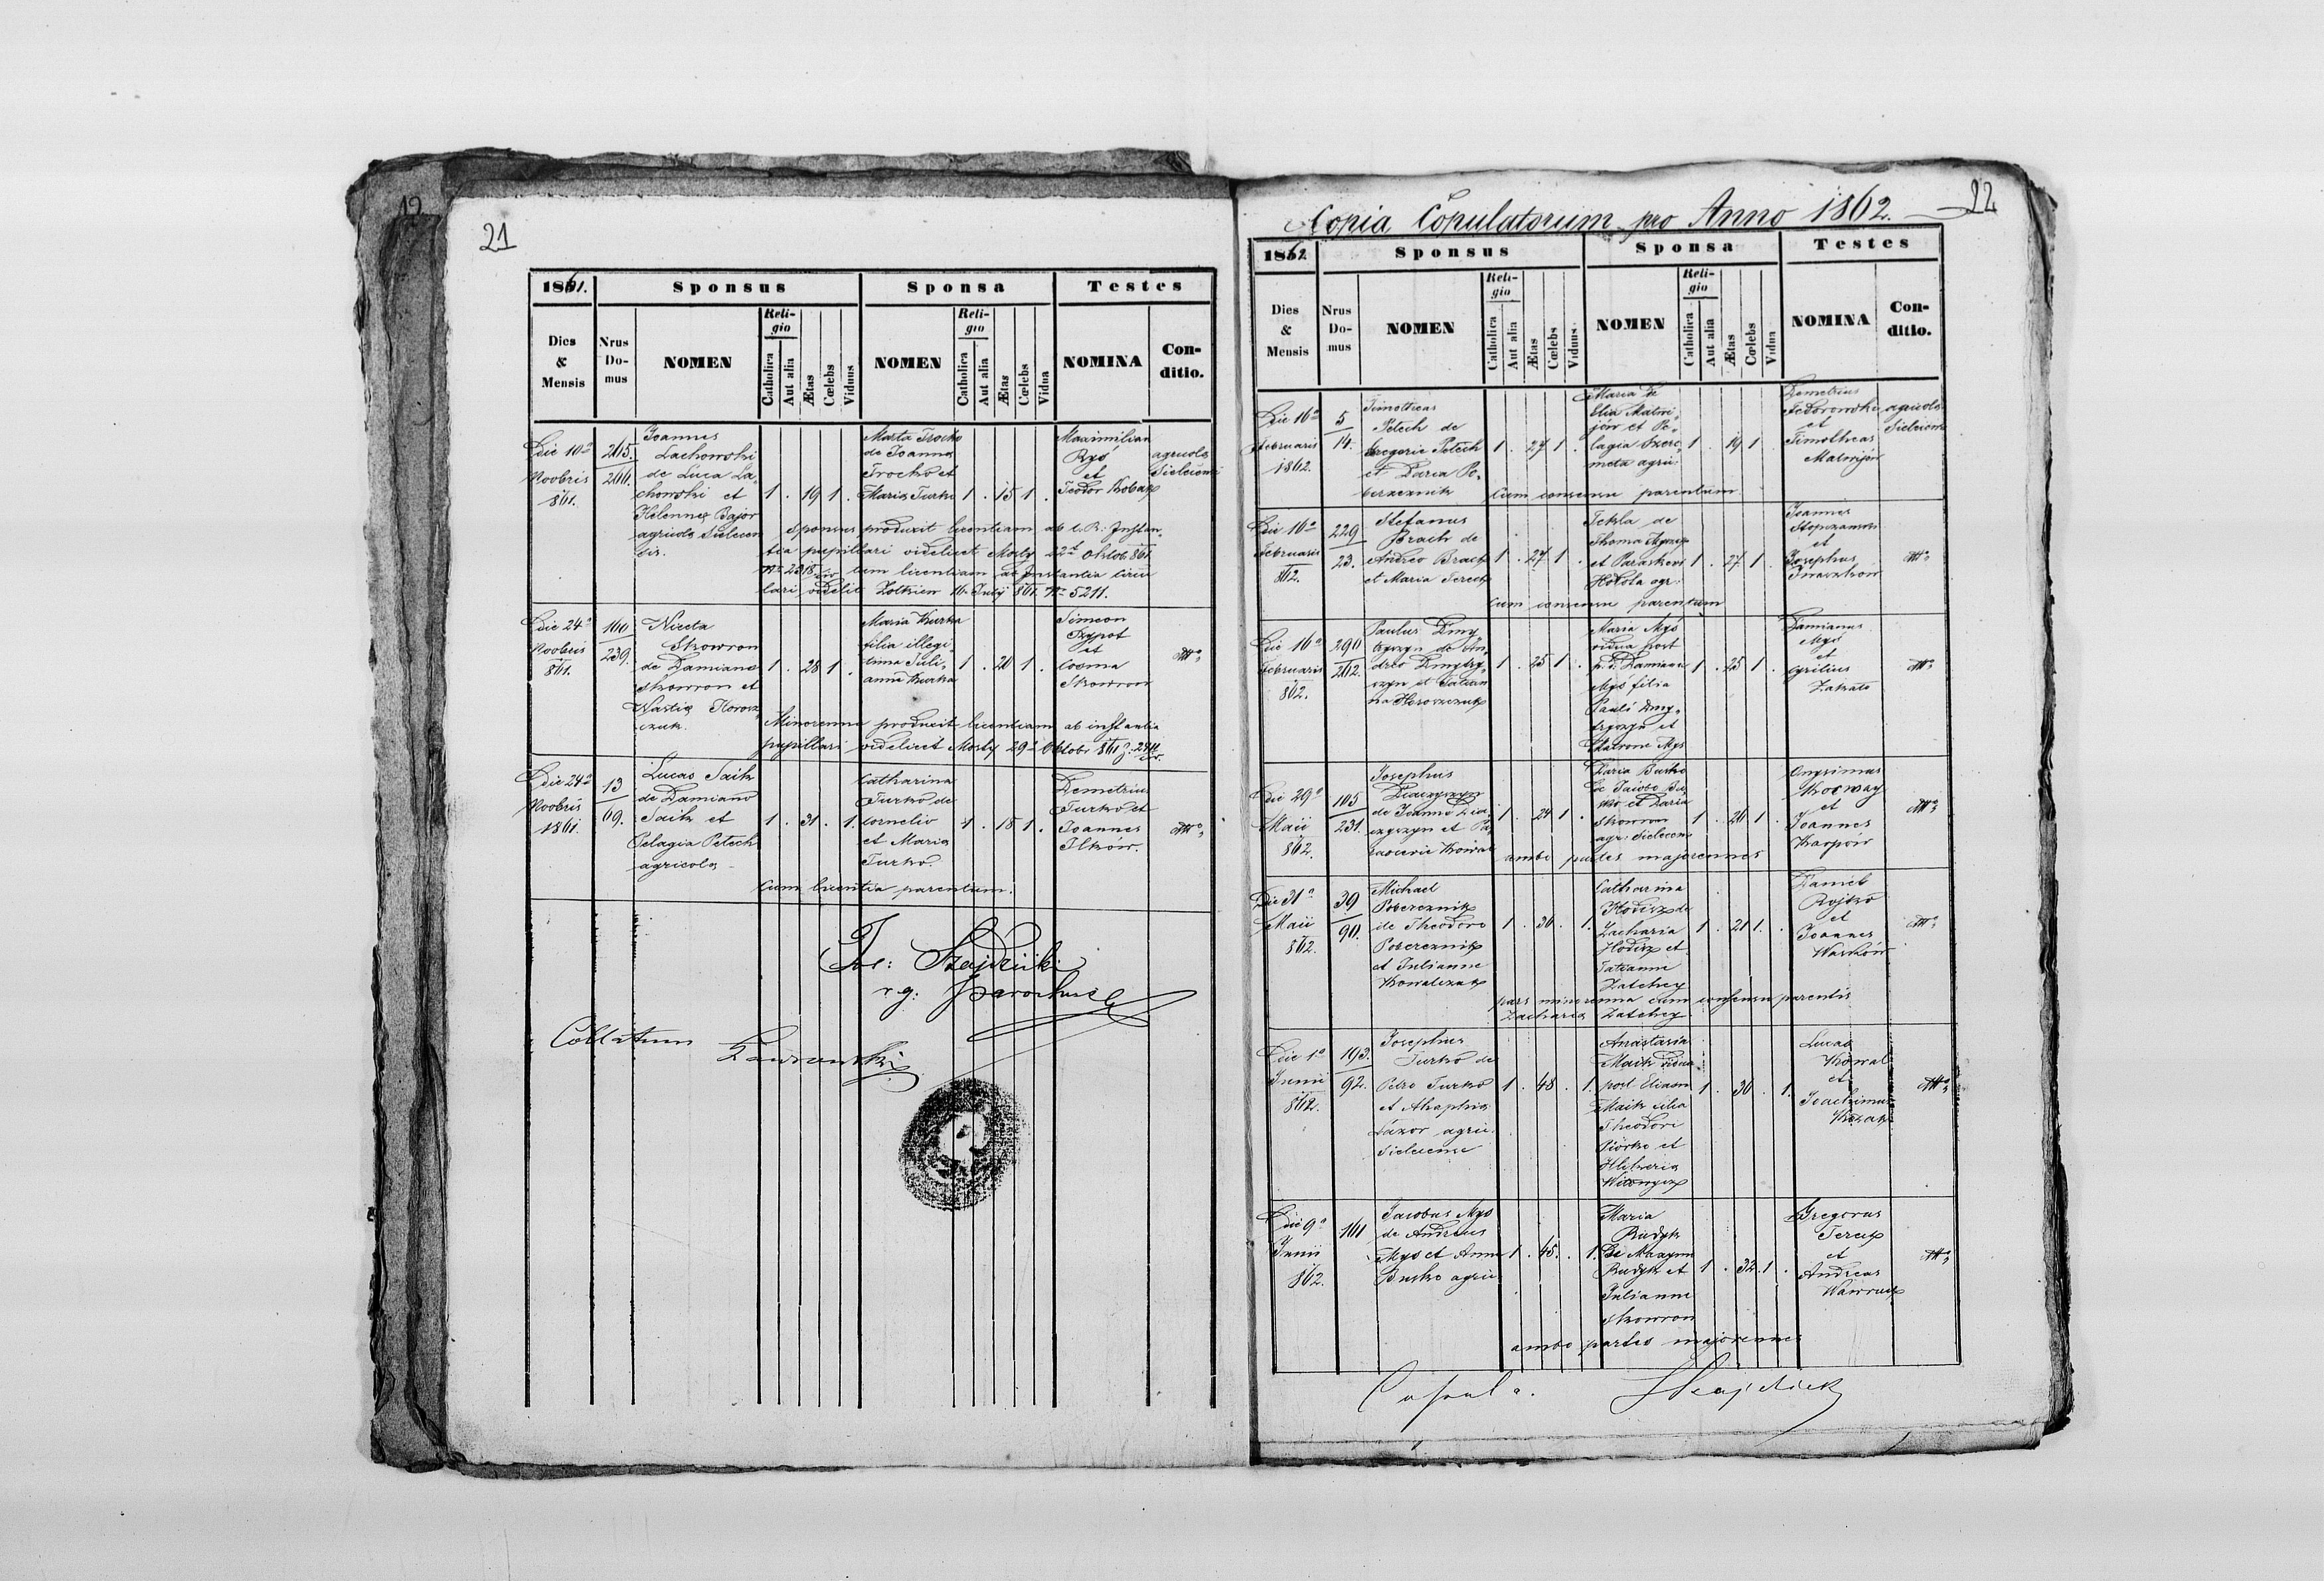 12
21
1861.
Sponsus
Sponsa
Testes
Dies & Mensis
Nrus Domus
NOMEN
Religio
Catholica
Aut alia
Ætas
Cœlebs
Viduus
NOMEN
Religio
Catholica
Aut alia
Ætas
Cœlebs
Vidua
NOMINA
Conditio.
Die 10a
Novbris
1861.
265.
266.
Joannes
Lachowski
de Luca La-
chowski et
Helenna Bajor
agricola Sielecen
sis.
1 . 19 1 .
Marta Trocko
de Joanna
Trocko et
Maria Turko
1 . 15 1 .
Maximilian
Ryś
et
Teodor Kobak
agricola
Sielecensi
Sponsus produxit licentiam ab C. R. Instan-
tia pupillari videlicet Mosty 22t Oktob 861
Nr 2318 tum licentiam ab Instantia circu
lari videlic Zolkiew 16. July 861. Nr 5211.
Die 24a
Novbris
861.
160
239.
Niceta
Skowron
de Damiano
Skowron et
Nastia Korosz
czuk.
1 . 28 1 .
Maria Kurka
filia illegi-
tima Juli-
anna Kurka
1 . 20 1 .
Simeon
Szypot
et
Cosma
Skowron
Minorenna produxit licentiam ab instantia
pupillari videlicet Mosty 29a Oktobr 861
Die 24a
Novbris
1861.
13
69.
Lucas Saik
de Damiano
Saik et
Pelagia Petech
agricola
1 . 31 . 1.
Catharina
Turko de
Cornelio
et Maria
Turko.
1 . 18 1 .
Demetrius
Turko et
Joannes
Ilków.
Cum licentia parentum.
parochus
Collatum
22
Copia Copulatorum pro Anno 1862.
1862
Sponsus
Sponsa
Testes
Dies & Mensis
Nrus Domus
NOMEN
Religio
Catholica
Aut alia
Ætas
Cœlebs
Viduus
NOMEN
Religio
Catholica
Aut alia
Ætas
Cœlebs
Vidua
NOMINA
Conditio.
Die 16a
Februaris
1862.
5
14.
Timotheas
Petech de
Gregorie Petech
et Daria Po-
bereznik
1 . 27 1 .
Maria de
Elia Matwi-
jów et Pe-
lagia
agri:
1 . 19 1
Demetrius
Fedorowski
et
Timotheas
Matwijów
agricola
Sielecens
Cum consensu parentum
Die 16a
Februaris
862.
229
23.
Stefanus
Brach de
Andreo Brach
et Maria Tereck
1 . 27 1 .
Tekla de
Thoma
et Paraskevi
Hokola agr:
1 . 27 1 .
Joannes
et
Josephus
Cum consensu parentum
Die 16a
Februaris
862.
290
262.
Paulus Dmy
tryszyn de An-
dreo Dmytry-
szyn et Tatian
na
1 . 25 1 .
Maria Myś
vidua post
p. d. Damiano
Myś filia
Pauli Dmy-
tryszyn et
Matrone Mys
1 . 25 1 .
Damianus
Myś
et
Cyrilius
Zakato
Die 29a
Maii
862.
105
231.
Josephus
Diaczyszyn
de Joanne Dia
czyszyn et Pa-
rascevie Kowal
1 . 24 1 .
Daria Busko
de Jacobo Bu
sko et Daria
Skowron
agr: Sielecens
1 . 26 1 .
Onysimus
et
Joannes
Karpów
ambo partes majorennes
Die 31a
Maii
862.
39
90.
Michael
Pobereznik
de Theodoro
Pobereznik
et Julianne
Kowalczuk
1 . 36 . 1.
Catharina
de
Zacharia
et
Tatianne
Zatchey
1 . 21 1 .
Daniel
Rojko
et
Joannes
Wasków
pars minorenna cum consensu parentis
Zacharia Zatchey
Die 1a
Junii
862.
193.
92.
Josephus
Turko de
Petro Turko
et Ahaphia
Lazor agric.
Sielecense
1 . 48 . 1.
Anastasia
Maik vidua
post Eliason
Maik filia
Theodore
Piórko et
1 . 36 . 1.
Lucas
Kowal
et
Joachimus
Kozak
Die 9a
Junii
862.
161
Jacobus Mys
de Andreus
Mys et Anna
Busko agric
1 . 45 . 1.
Maria
Rudyk
de Maxymo
Rudyk et
Julianne
Skowron
1 . 32 . 1 .
Gregorus
Tereck
et
Andreas
Wawruck
ambo partes majorennes